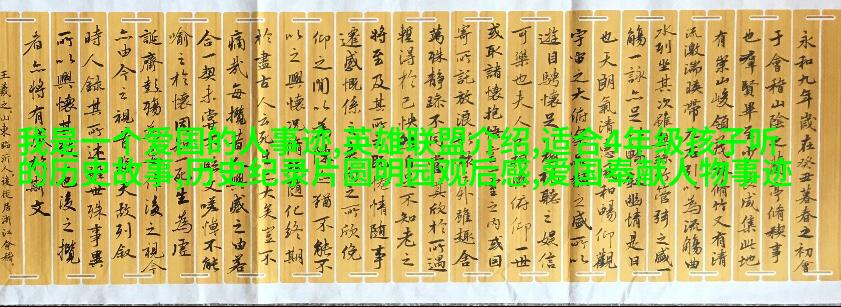 我是一个爱国的人事迹,英雄联盟介绍,适合4年级孩子听
的历史故事,历史纪录片圆明园观后感,爱国奉献人物事迹
永和九年歲在癸丑暮春之初會
于會稽山陰之蘭亭脩稧事
也羣賢畢至少長咸集此地
有崇山峻領茂林脩竹又有清
流激湍暎帶左右引以為流觴曲
水列坐其次雖無絲竹管弦之盛一
觴一詠亦足以暢敘幽情是日
也天朗氣清惠風和暢仰觀
宇宙之大俯察品類之盛所以
遊目騁懷足以極視聽之娛信
可樂也夫人之相與俯仰一世
或取諸懷抱悟言一室之內或因
寄所託放浪形骸之外雖趣舍
萬殊靜躁不同當其欣於所遇
暫得於己快然自足不知老之
將至及其所之既惓情隨事
遷感慨係之矣向之所欣俛
仰之間以為陳迹猶不能不
以之興懷況脩短隨化終期
於盡古人云死生亦大矣豈不
痛哉每攬昔人興感之由若
合一契未嘗不臨文嗟悼不能
喻之於懷固知一死生為虛
誕齊彭殤為妄作後之視今
亦由今之視昔悲夫故列敘
時人錄其所述雖世殊事異
所以興懷其致一也後之攬
者亦將有感於斯文